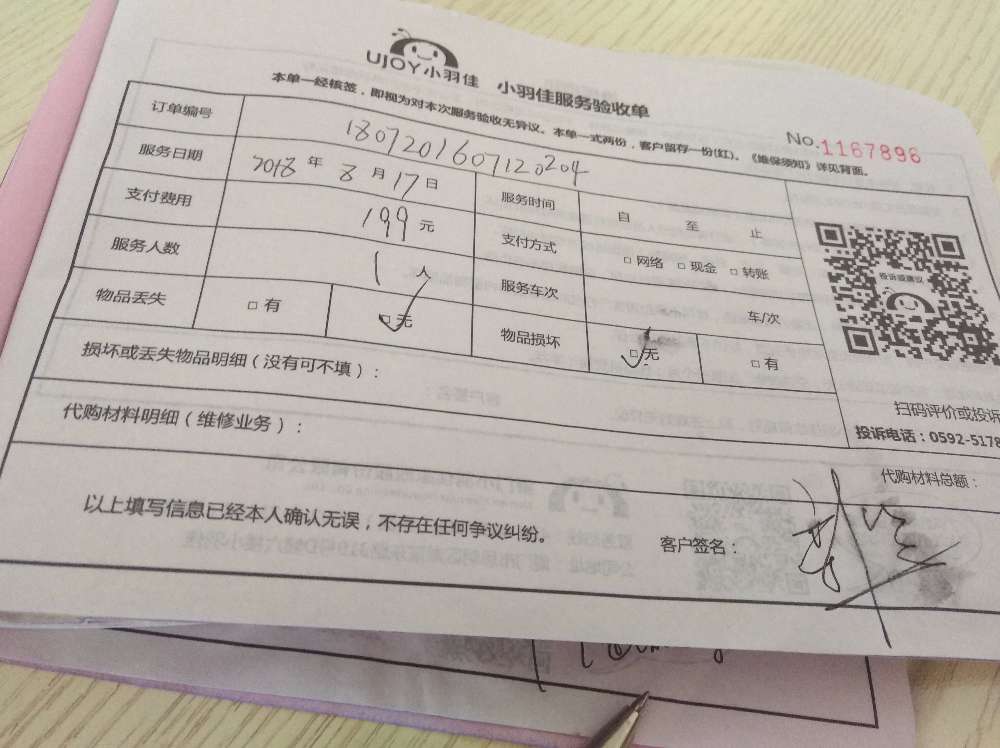 UJOY小羽佳 小羽佳服务验收单
本单一经核签，即视为对本次服务验收无异议。本单一式两份，客户留存一份(红)。《维保须知》详见背面。
No.1167896
订单编号 1807201607120204
服务日期 2018年8月17日 服务时间 自 至 止
支付费用 199元 支付方式 □网络 □现金 □转账
服务人数 1人 服务车次 车/次
物品丢失 □有 □无 物品损坏 □无 □有
投诉或建议
扫码评价或投诉
投诉电话：0592-5178
损坏或丢失物品明细（没有可不填）：
代购材料明细（维修业务）：
代购材料总额：
以上填写信息已经本人确认无误，不存在任何争议纠纷。
客户签名：